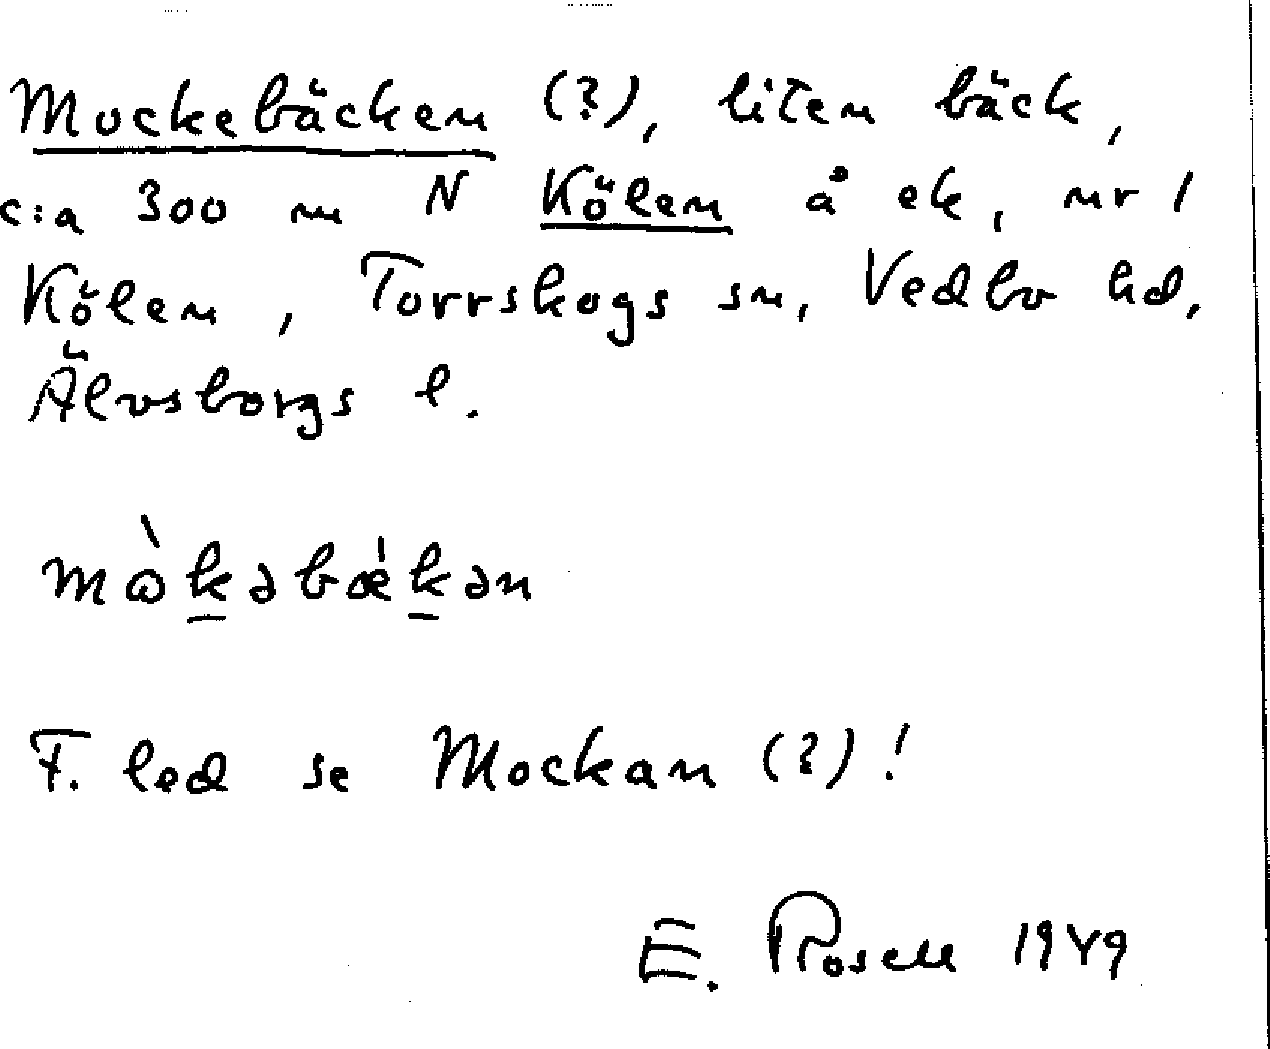 Mockebäcken (?), liten bäck,
c:a 300 m N Kölen å ek, nr 1
Kölen, Torrskogs sn, Vedbo hd,
Älvsborgs l.
mὼkəbǽkən
F. led se Mockan (?)!
E. Rosell 1949